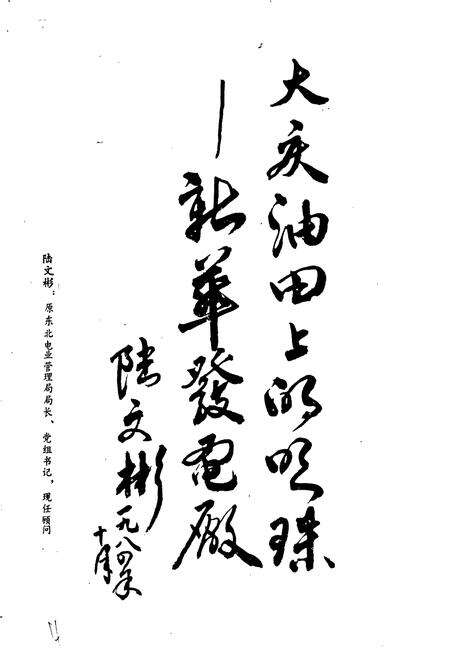 大庆油田上的明珠
—新华發電廠
陆文彬
一九八四年
十月
陆文彬：原东北电业管理局局长、党组书记，现任顾问